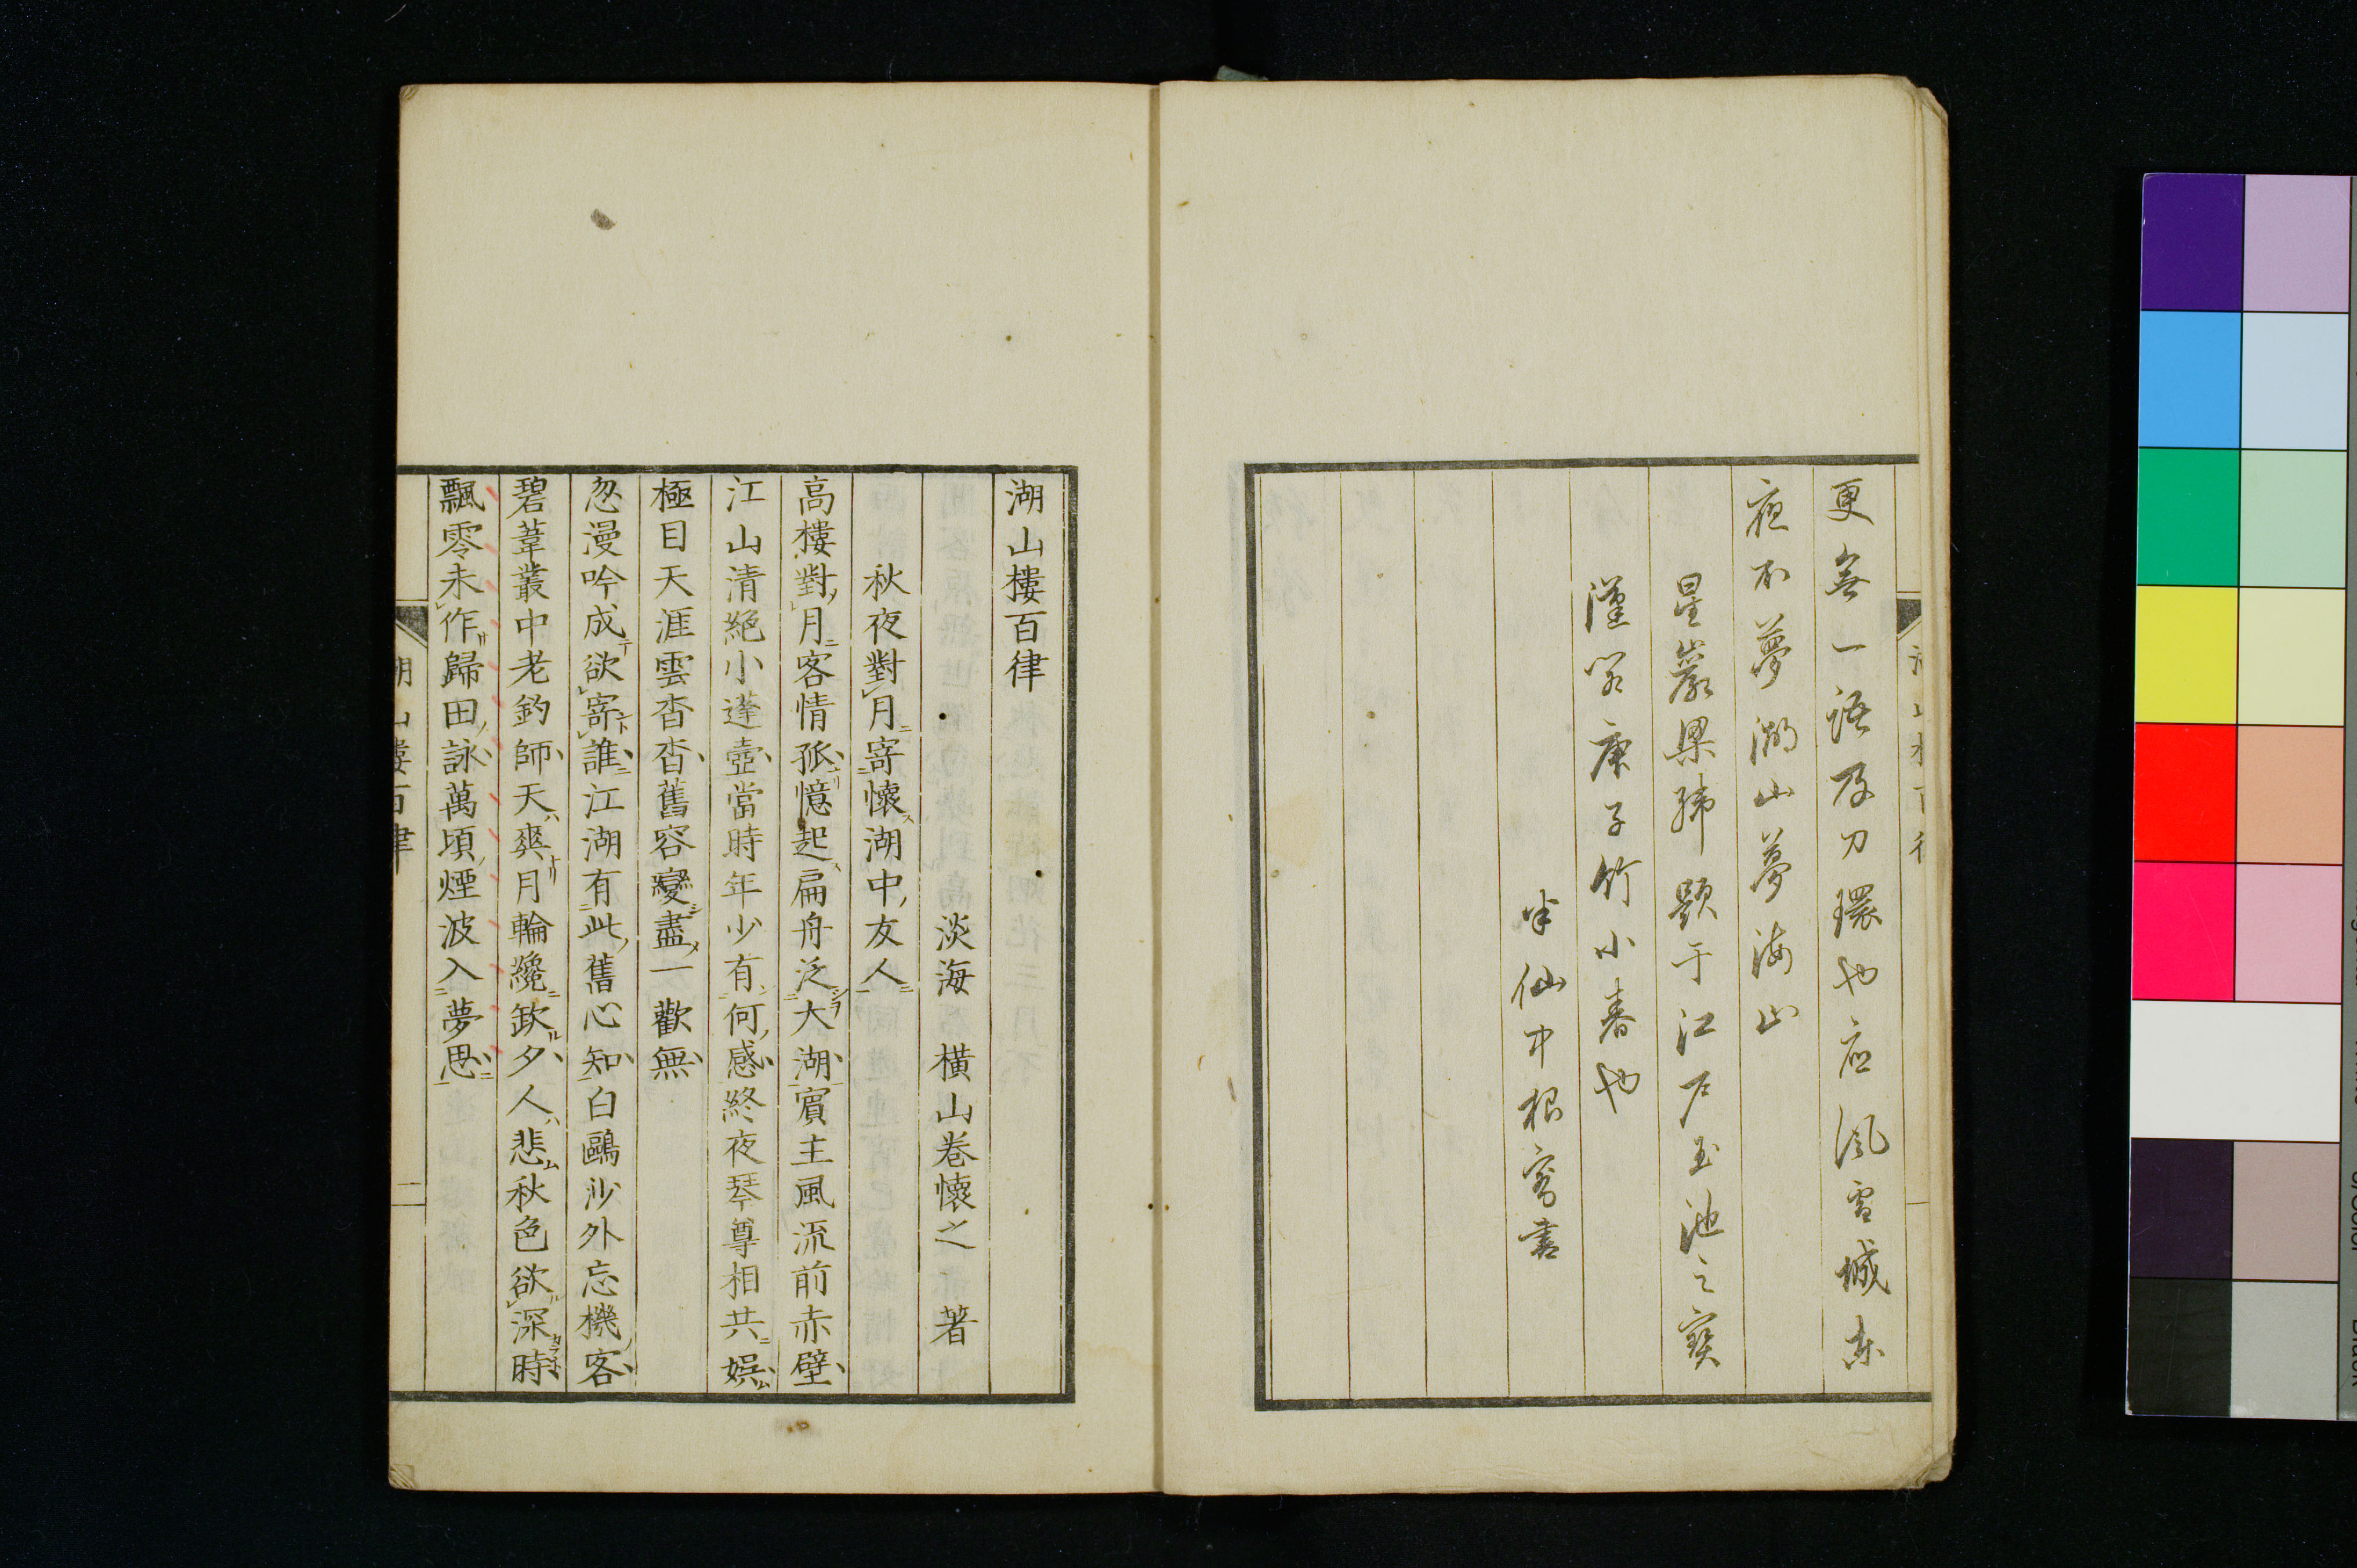 更無一語及刀環也応風雪城東
夜不夢湖山夢海山
星巖梁緯題于江戸玉池之寓
澐閣庚子竹小春也
半仙中根寯書
湖山樓百律
淡海 橫山卷懷之 著
秋夜對月寄懷湖中友人
高樓對月客情孤憶起扁舟泛大湖賓主風流前赤壁
江山清絕小蓬壺當時年少有何感終夜琴尊相共娯
極目天涯雲杳杳舊容變盡一歡無
忽漫吟成欲寄誰江湖有此舊心知白鷗沙外忘機客
碧葦叢中老釣師天爽月輪纔缺夕人悲秋色欲深時
飄零未作歸田詠萬頃煙波入夢思
湖山樓百律